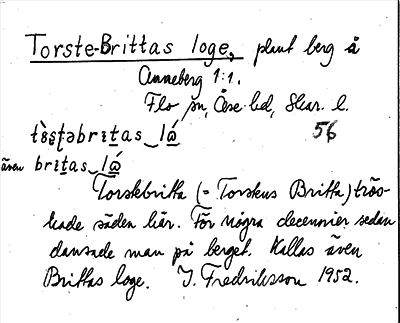 Torste-Brittas loge, plant berg å
Anneberg 1:1.
Flo sn, Åse hd, Skar. l.
brɩtas lǻ 56
även brɩtas lǻ
Torskbritta (= Torskus Britta) trös-
kade säden här. För några decennier sedan
dansade man på berget. Kallas även
Brittas loge. J. Fredriksson 1952.